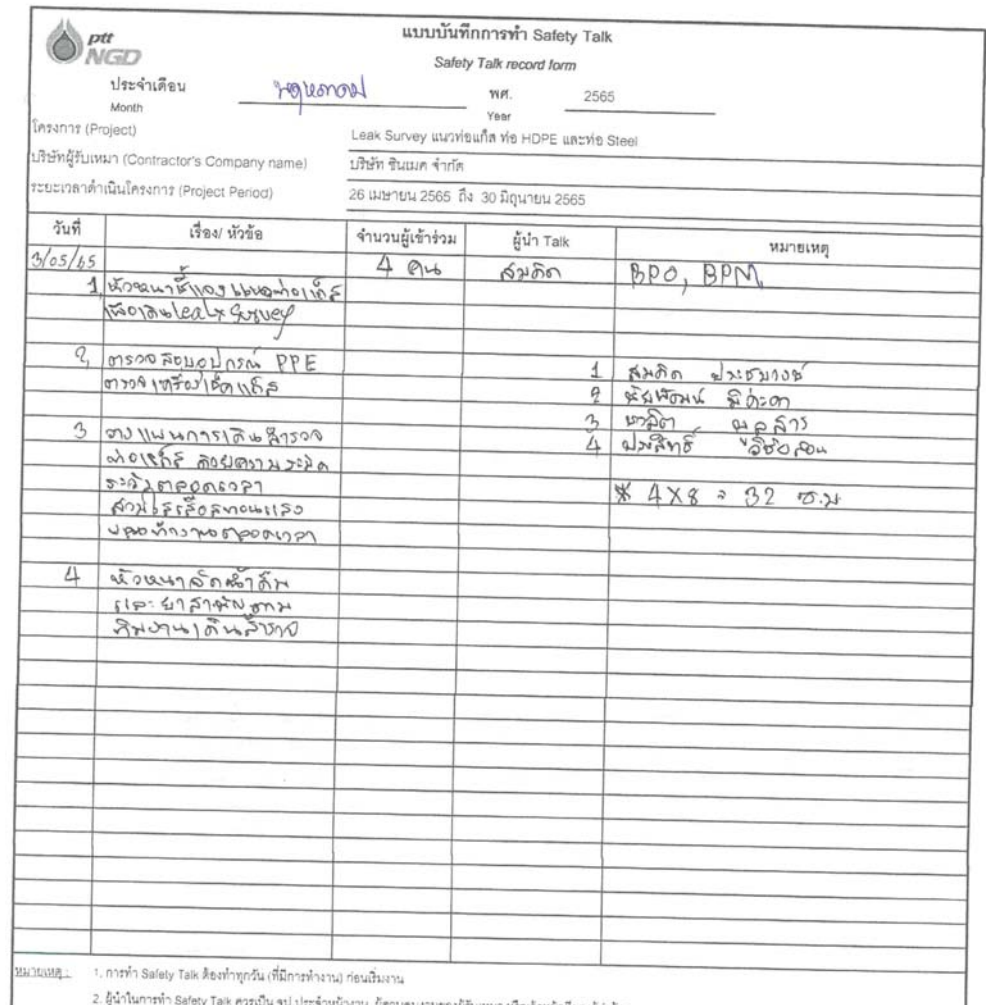 ptt
NGD
แบบบันทึกการทำ Safety Talk
Safety Talk record form
ประจำเดือน พฤษภาคม พศ. 2565
Month Year
โครงการ (Project) Leak Survey แนวท่อแก๊ส ท่อ HDPE และท่อ Steel
บริษัทผู้รับเหมา (Contractor's Company name) บริษัท ชินเมค จำกัด
ระยะเวลาดำเนินโครงการ (Project Period) 26 เมษายน 2565 ถึง 30 มิถุนายน 2565
วันที่ เรื่อง/ หัวข้อ จำนวนผู้เข้าร่วม ผู้นำ Talk หมายเหตุ
3/05/65 4 คน สมคิด BPO, BPM
1, หัวหน้าชี้แจงแนวท่อแก๊ส
เพื่อเดิน Leak Survey
2, ตรวจสอบอุปกรณ์ PPE
1 สมคิด
ตรวจเครื่องเช็คแก๊ส
2
3 วางแผนการเดินสำรวจ
3
ท่อแก๊ส ด้วยความระมัด
4 ประสิทธิ์
ระวังตลอดเวลา
* 4X8 = 32 ช.ม
สวมใส่เสื้อสะท้อนแสง
ตลอดเวลา
4 หัวหน้าจัดน้ำดื่ม
และยาสามัญ
ทีมงานเดินสำรวจ
หมายเหตุ : 1. การทำ Safety Talk ต้องทำทุกวัน (ที่มีการทำงาน) ก่อนเริ่มงาน
2. ผู้นำในการทำ Safety Talk ควรเป็น จป.ประจำหน้างาน